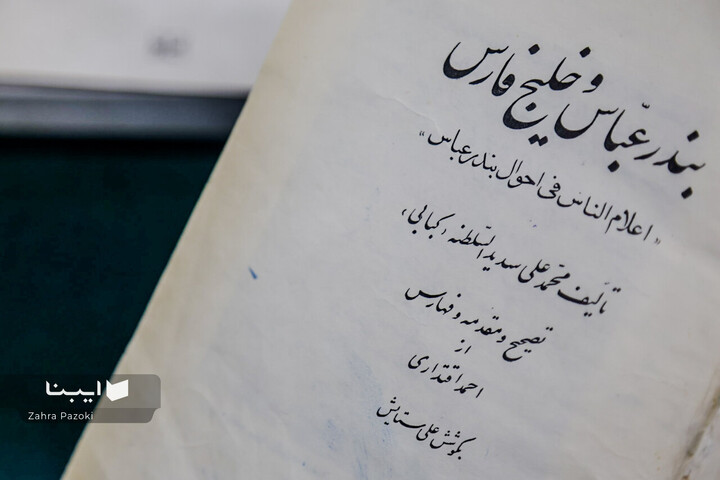 بندرعبّاس و خلیج فارس
«اعلام الناس فی احوال بندرعباس»
تألیف محمّدعلی سدیدالسّلطنه «کبابی»
تصحیح و مقدمه و فهارس
از
احمد اقتداری
بکوشش علی ستایش
ایبنا
Zahra Pazoki